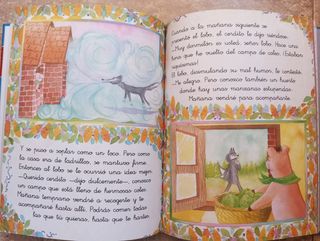 Y se puso a soplar como un loco. Pero como
la casa era de ladrillos, se mantuvo firme.
Entonces al lobo se le ocurrió una idea mejor.
—Querido cerdito —dijo dulcemente—, conozco
un campo que está lleno de hermosas coles.
Mañana temprano vendré a recogerte y te
acompañaré hasta allí. Podrás comer todas
las que tú quieras, hasta que te hartes.
Cuando a la mañana siguiente se
presentó el lobo, el cerdito le dijo riéndose:
—Muy dormilón es usted, señor lobo. Hace una
hora que he vuelto del campo de coles. ¡Estaban
riquísimas!
El lobo, disimulando su mal humor, le contestó:
—Me alegro. Pero conozco también un huerto
donde hay unas manzanas estupendas.
Mañana vendré para acompañarte.